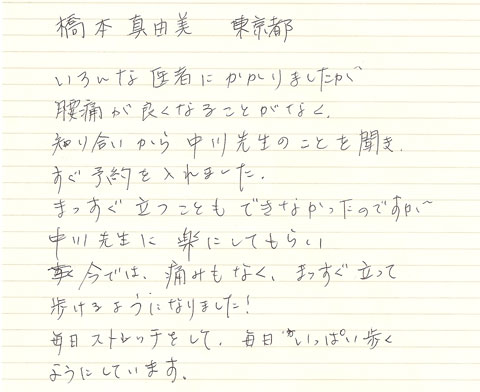 橋本真由美 東京都
いろんな医者にかかりましたが
腰痛が良くなることがなく、
知り合いから中川先生のことを聞き、
すぐ予約を入れました。
まっすぐ立つこともできなかったのですが
中川先生に楽にしてもらい
今では、痛みもなく、まっすぐ立って
歩けるようになりました!
毎日ストレッチをして、毎日かいっぱい歩く
ようにしています。